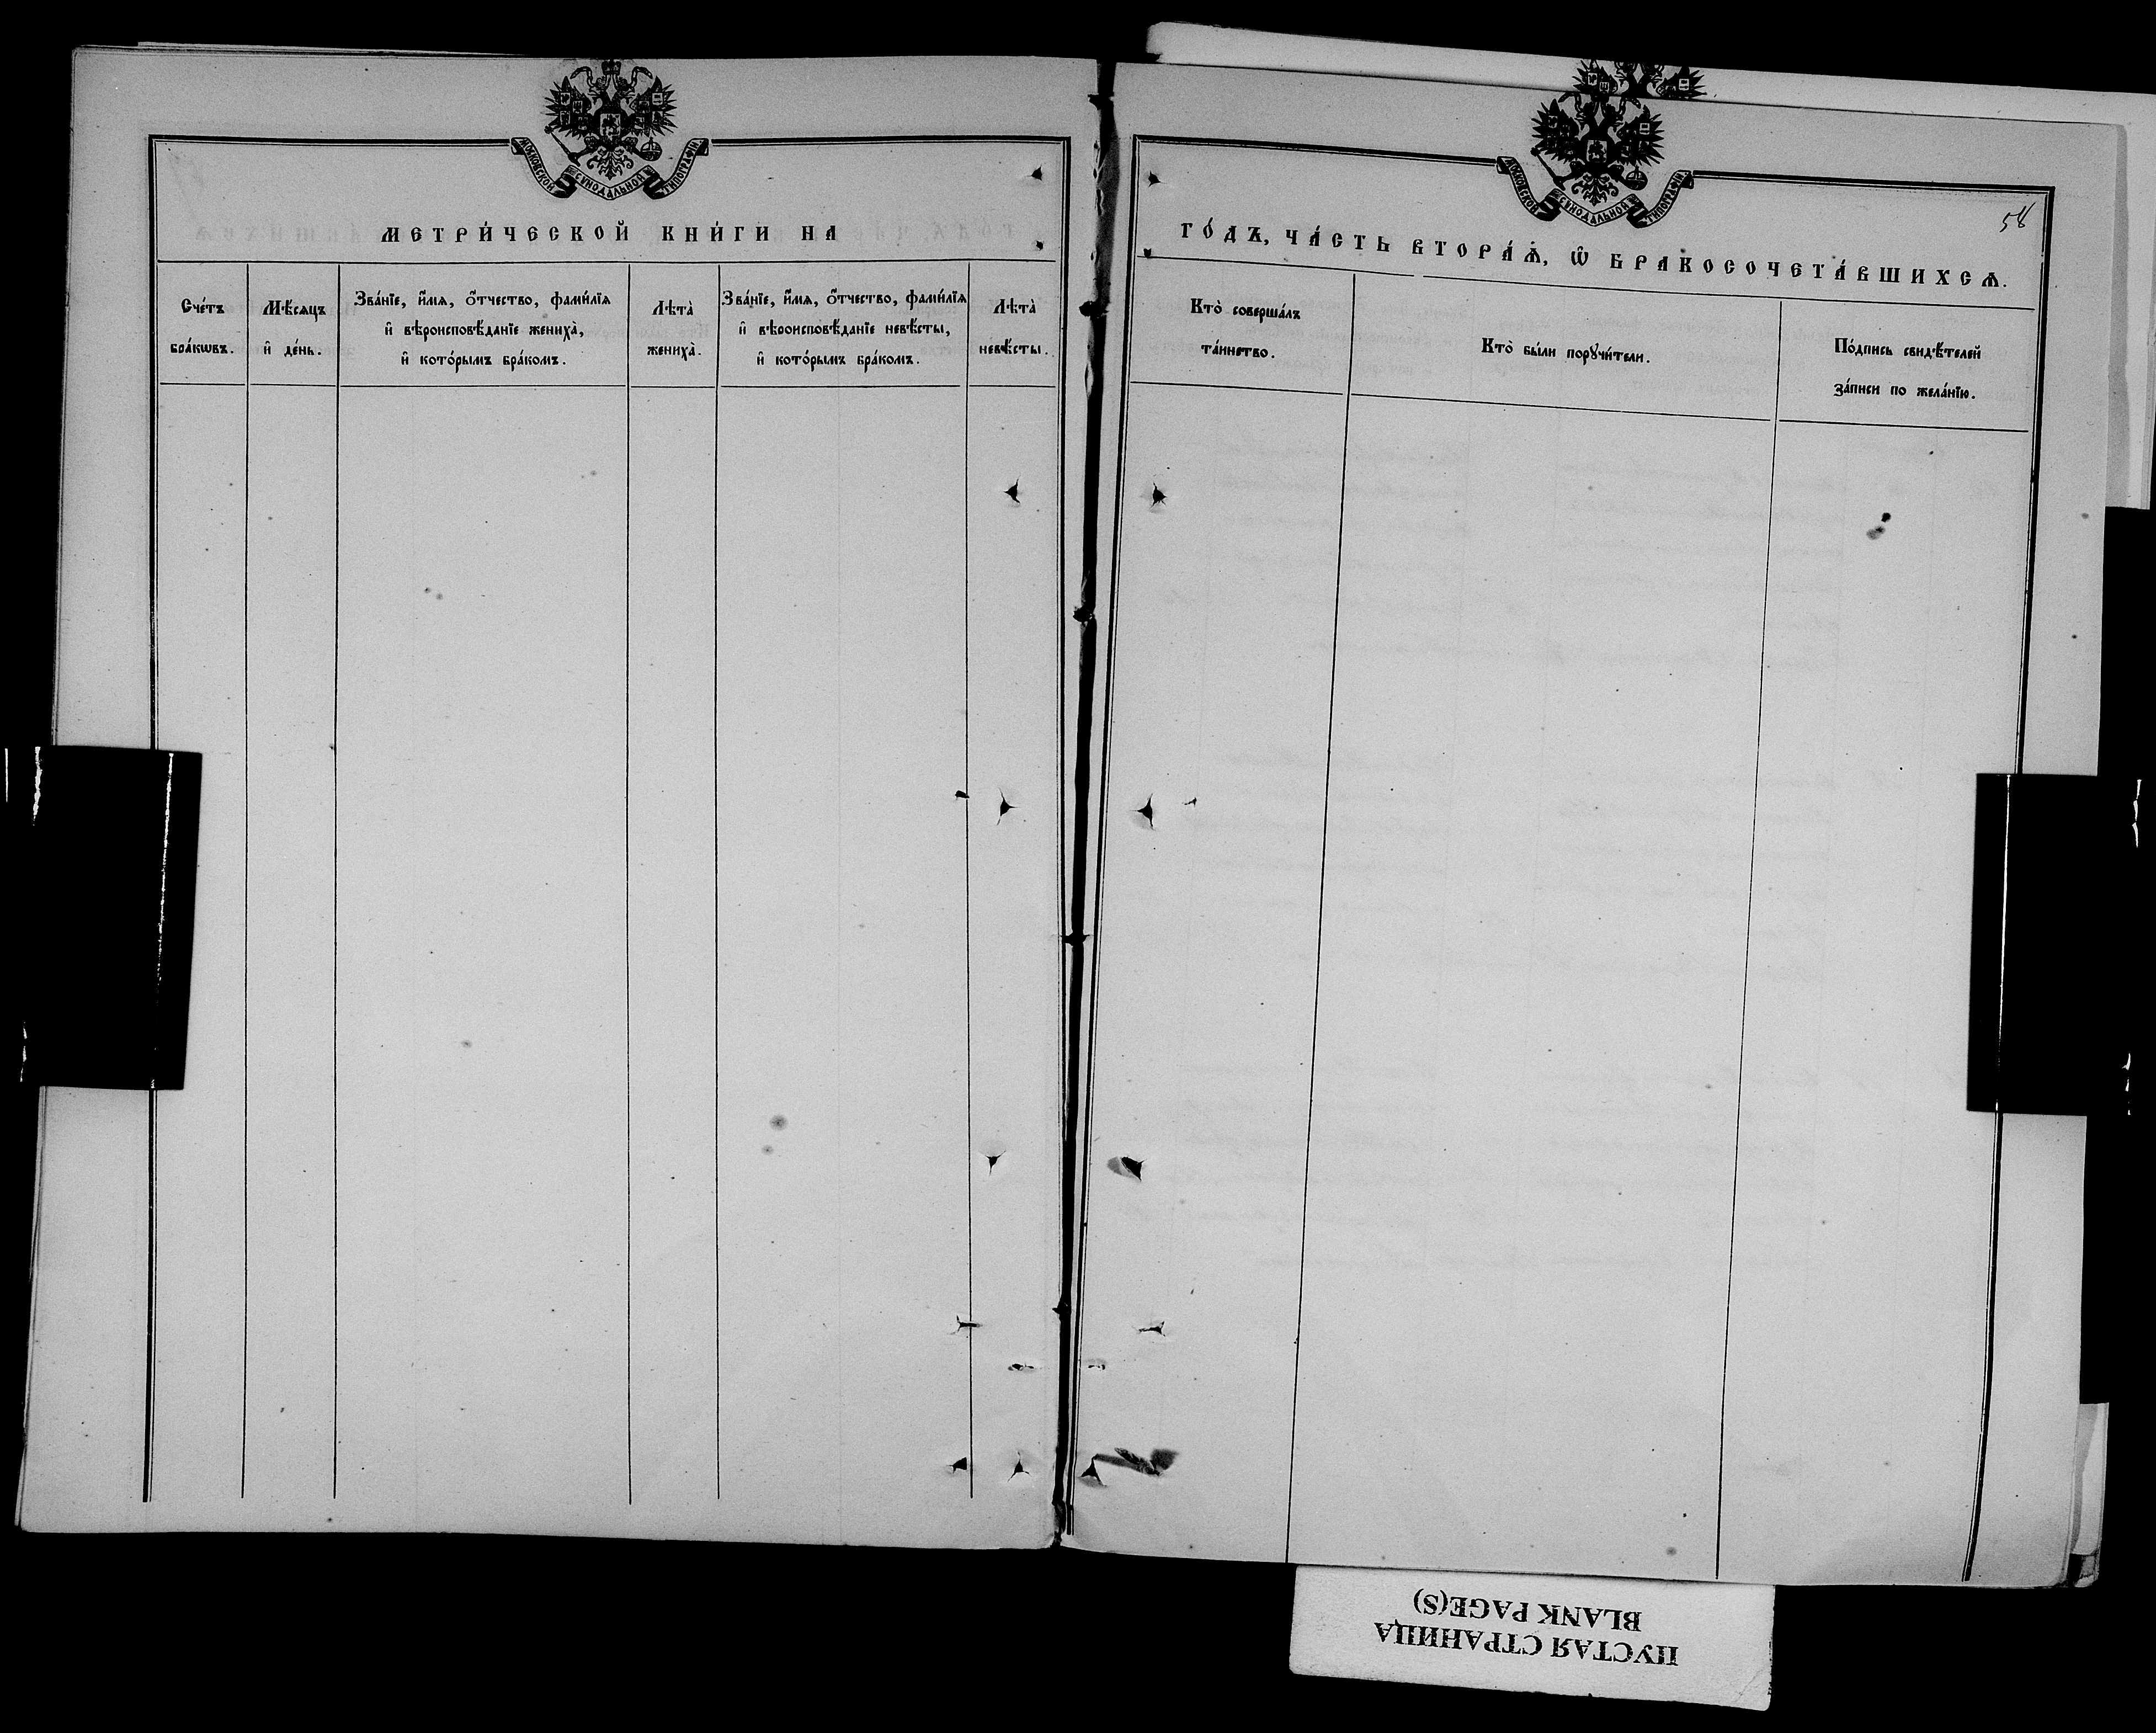 МОСКОВСКОЙ СѴНОДАЛЬНОЙ ТИПОГРАФІИ
МЕТРИ́ЧЕСКОЙ КНИ́ГИ НА
Сче́тъ бра́кѡвъ.
Мѣ́сяцъ и҆ де́нь.
Зва́нїе, и҆́мя, ѻ҆́тчество, фами́лїя
и҆ вѣроисповѣ́данїе жениха̀,
и҆ кото́рымъ бра́комъ.
Лѣта̀ жениха̀.
Зва́нїе, и҆́мя, ѻ҆́тчество, фами́лїя
и҆ вѣроисповѣ́данїе невѣ́сты,
и҆ кото́рымъ бра́комъ.
Лѣта̀ невѣ́сты.
МОСКОВСКОЙ СѴНОДАЛЬНОЙ ТИПОГРАФІИ
58
ГО́ДЪ, ЧА́СТЬ ВТОРА́Ѧ, Ѡ҆ БРАКОСОЧЕТА́ВШИХСѦ.
Кто̀ соверша́лъ
та́инство.
Кто̀ бы́ли порꙋчи́тели.
По́дпись свидѣ́телей
за́писи по жела́нїю.
ПУСТАЯ СТРАНИЦА
BLANK PAGE(S)